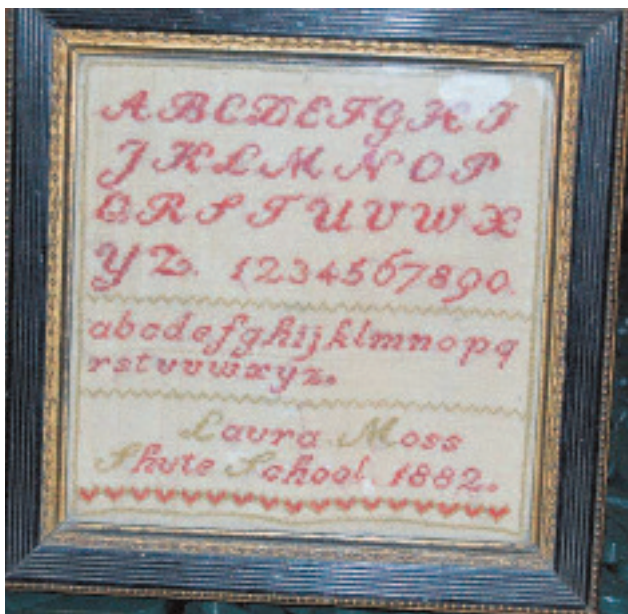 A B C D E F G H I
J K L M N O P
Q R S T U V W X
Y Z. 1234567890.
abcdefghijklmnopq
rstuvwxyz.
Laura Moss
Shute School 1882.